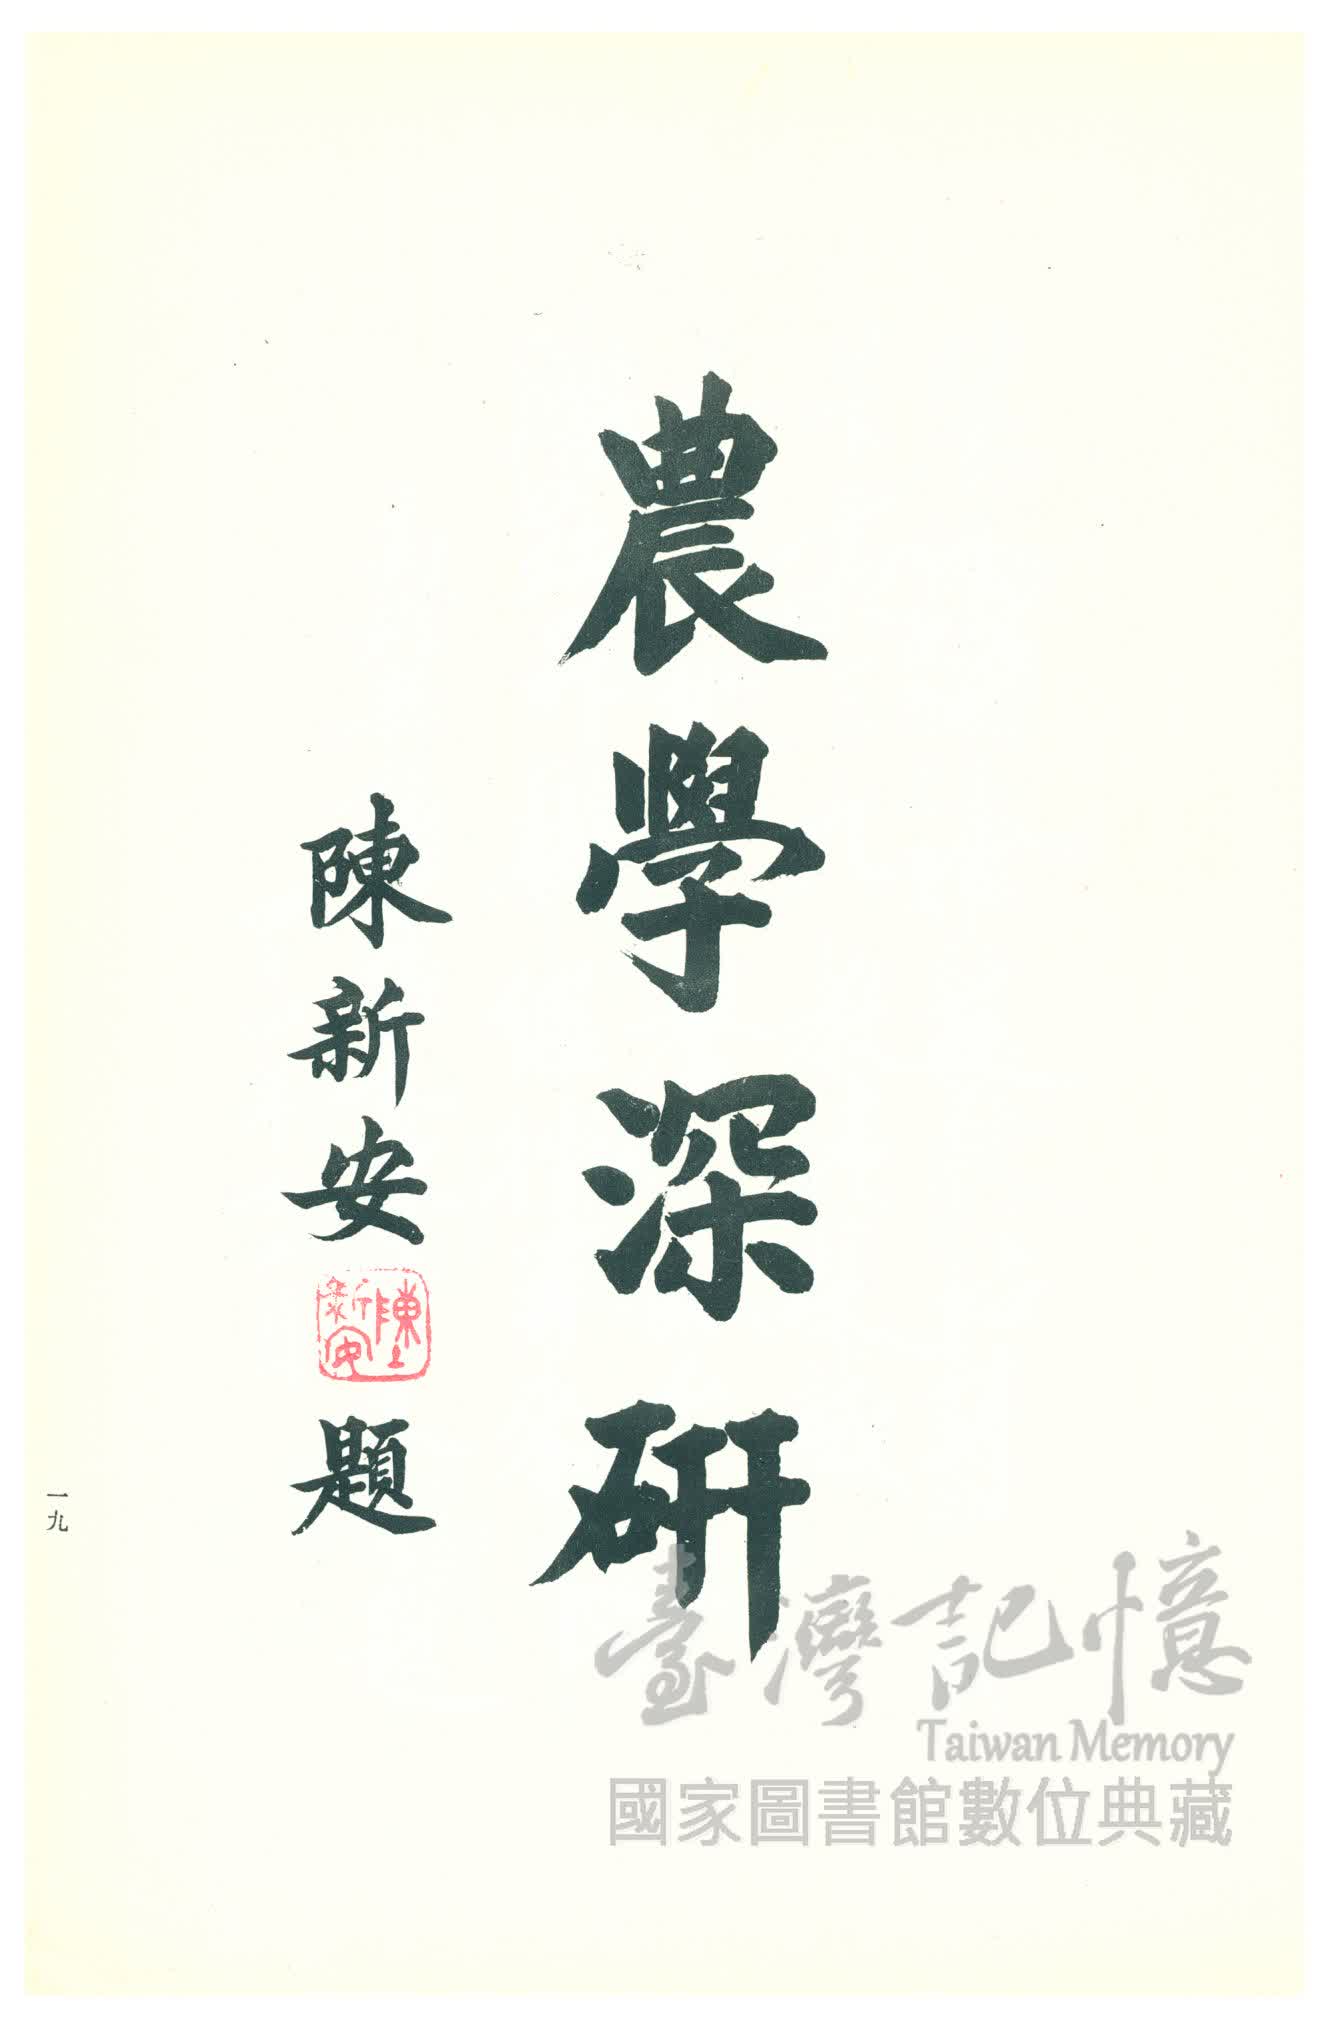 農學深研
陳新安
陳新安
題
一九
臺灣記憶
Taiwan Memory
國家圖書館數位典藏